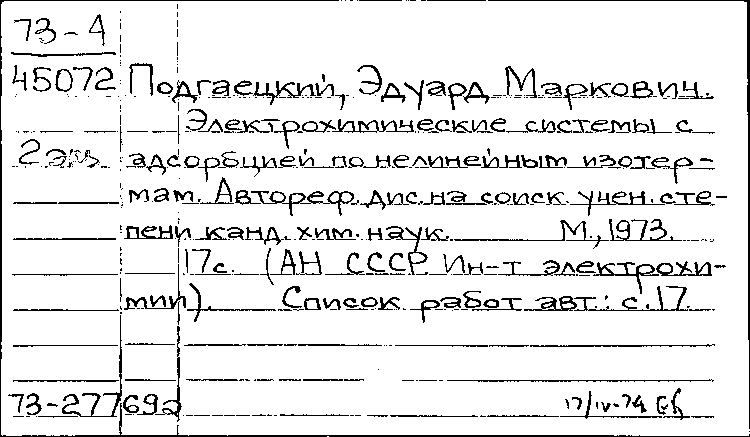 73-4
45072 Подгаецкий, Эдуард Маркович.
Электрохимические системы с
2 экз адсорбцией по нелинейным изотер-
мам. Автореф. дис. на соиск. учен. сте-
пени канд. хим. наук. М., 1973.
17с. (АН СССР. Ин-т электрохи-
мии). Список работ авт.: с. 17.
73-277692
17/IV-74